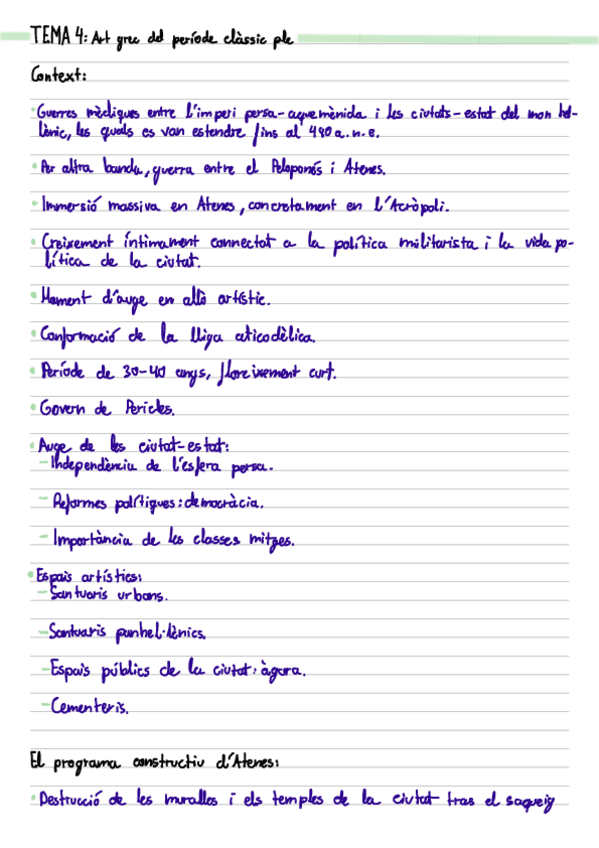 TEMA 4: Art grec del període clàssic ple
Context:
• Guerres mèdiques entre l'imperi persa-aquemènida i les ciutats-estat del mon hel-
lènic, les quals es van estendre fins al 480 a.n.e.
• Per altra banda, guerra entre el Peloponés i Atenes.
• Immersió massiva en Atenes, concretament en l'Acròpoli.
• Creixement íntimament connectat a la política militarista i la vida po-
lítica de la ciutat.
• Moment d'auge en allò artístic.
• Conformació de la lliga aticodèlica.
• Període de 30-40 anys, floreixement curt.
• Govern de Pericles.
• Auge de les ciutat-estat:
- Independència de l'esfera persa.
- Reformes polítiques: democràcia.
- Importància de les classes mitges.
• Espais artístics:
- Santuaris urbans.
- Santuaris panhel·lènics.
- Espais públics de la ciutat: àgora.
- Cementeris.
El programa constructiu d'Atenes:
• Destrucció de les muralles i els temples de la ciutat tras el saqueig